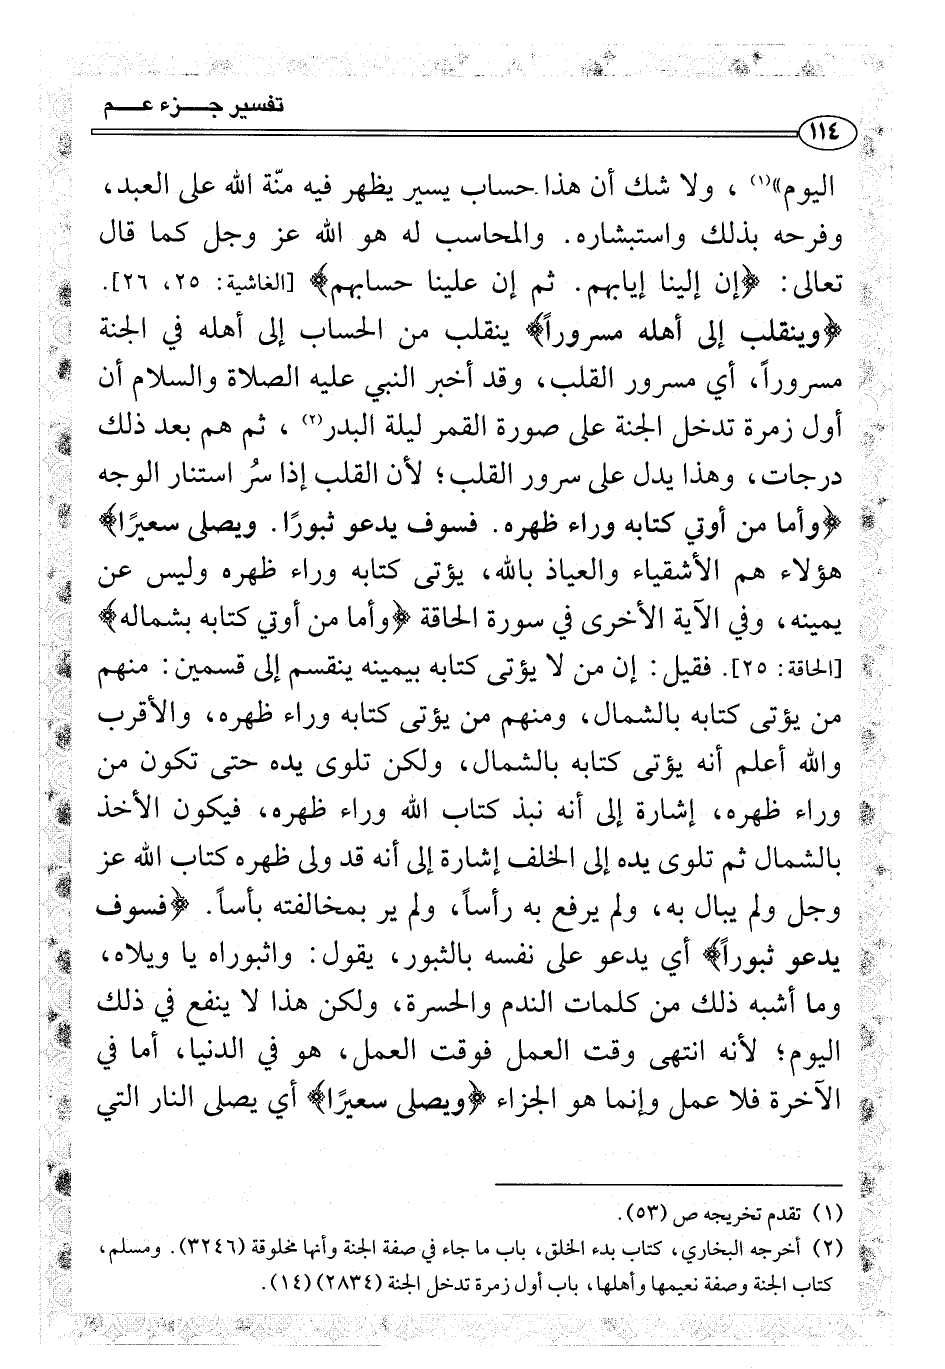 تفسير جـــزء عـــم
١١٤
اليوم»(١) ، ولا شك أن هذا حساب يسير يظهر فيه منّة الله على العبد،
وفرحه بذلك واستبشاره. والمحاسب له هو الله عز وجل كما قال
تعالى: ﴿إن إلينا إيابهم. ثم إن علينا حسابهم﴾ [الغاشية: ٢٥، ٢٦].
﴿وينقلب إلى أهله مسروراً﴾ ينقلب من الحساب إلى أهله في الجنة
مسروراً، أي مسرور القلب، وقد أخبر النبي عليه الصلاة والسلام أن
أول زمرة تدخل الجنة على صورة القمر ليلة البدر(٢) ، ثم هم بعد ذلك
درجات، وهذا يدل على سرور القلب؛ لأن القلب إذا سُر استنار الوجه
﴿وأما من أوتي كتابه وراء ظهره. فسوف يدعو ثبورًا. ويصلى سعيرًا﴾
هؤلاء هم الأشقياء والعياذ بالله، يؤتى كتابه وراء ظهره وليس عن
يمينه، وفي الآية الأخرى في سورة الحاقة ﴿وأما من أوتي كتابه بشماله﴾
[الحاقة: ٢٥]. فقيل: إن من لا يؤتى كتابه بيمينه ينقسم إلى قسمين: منهم
من يؤتى كتابه بالشمال، ومنهم من يؤتى كتابه وراء ظهره، والأقرب
والله أعلم أنه يؤتى كتابه بالشمال، ولكن تلوى يده حتى تكون من
وراء ظهره، إشارة إلى أنه نبذ كتاب الله وراء ظهره، فيكون الأخذ
بالشمال ثم تلوى يده إلى الخلف إشارة إلى أنه قد ولى ظهره كتاب الله عز
وجل ولم يبال به، ولم يرفع به رأساً، ولم ير بمخالفته بأساً. ﴿فسوف
يدعو ثبوراً﴾ أي يدعو على نفسه بالثبور، يقول: واثبوراه يا ويلاه،
وما أشبه ذلك من كلمات الندم والحسرة، ولكن هذا لا ينفع في ذلك
اليوم؛ لأنه انتهى وقت العمل فوقت العمل، هو في الدنيا، أما في
الآخرة فلا عمل وإنما هو الجزاء ﴿ويصلى سعيرًا﴾ أي يصلى النار التي
(١) تقدم تخريجه ص (٥٣).
(٢) أخرجه البخاري، كتاب بدء الخلق، باب ما جاء في صفة الجنة وأنها مخلوقة (٣٢٤٦). ومسلم،
كتاب الجنة وصفة نعيمها وأهلها، باب أول زمرة تدخل الجنة (٢٨٣٤) (١٤).